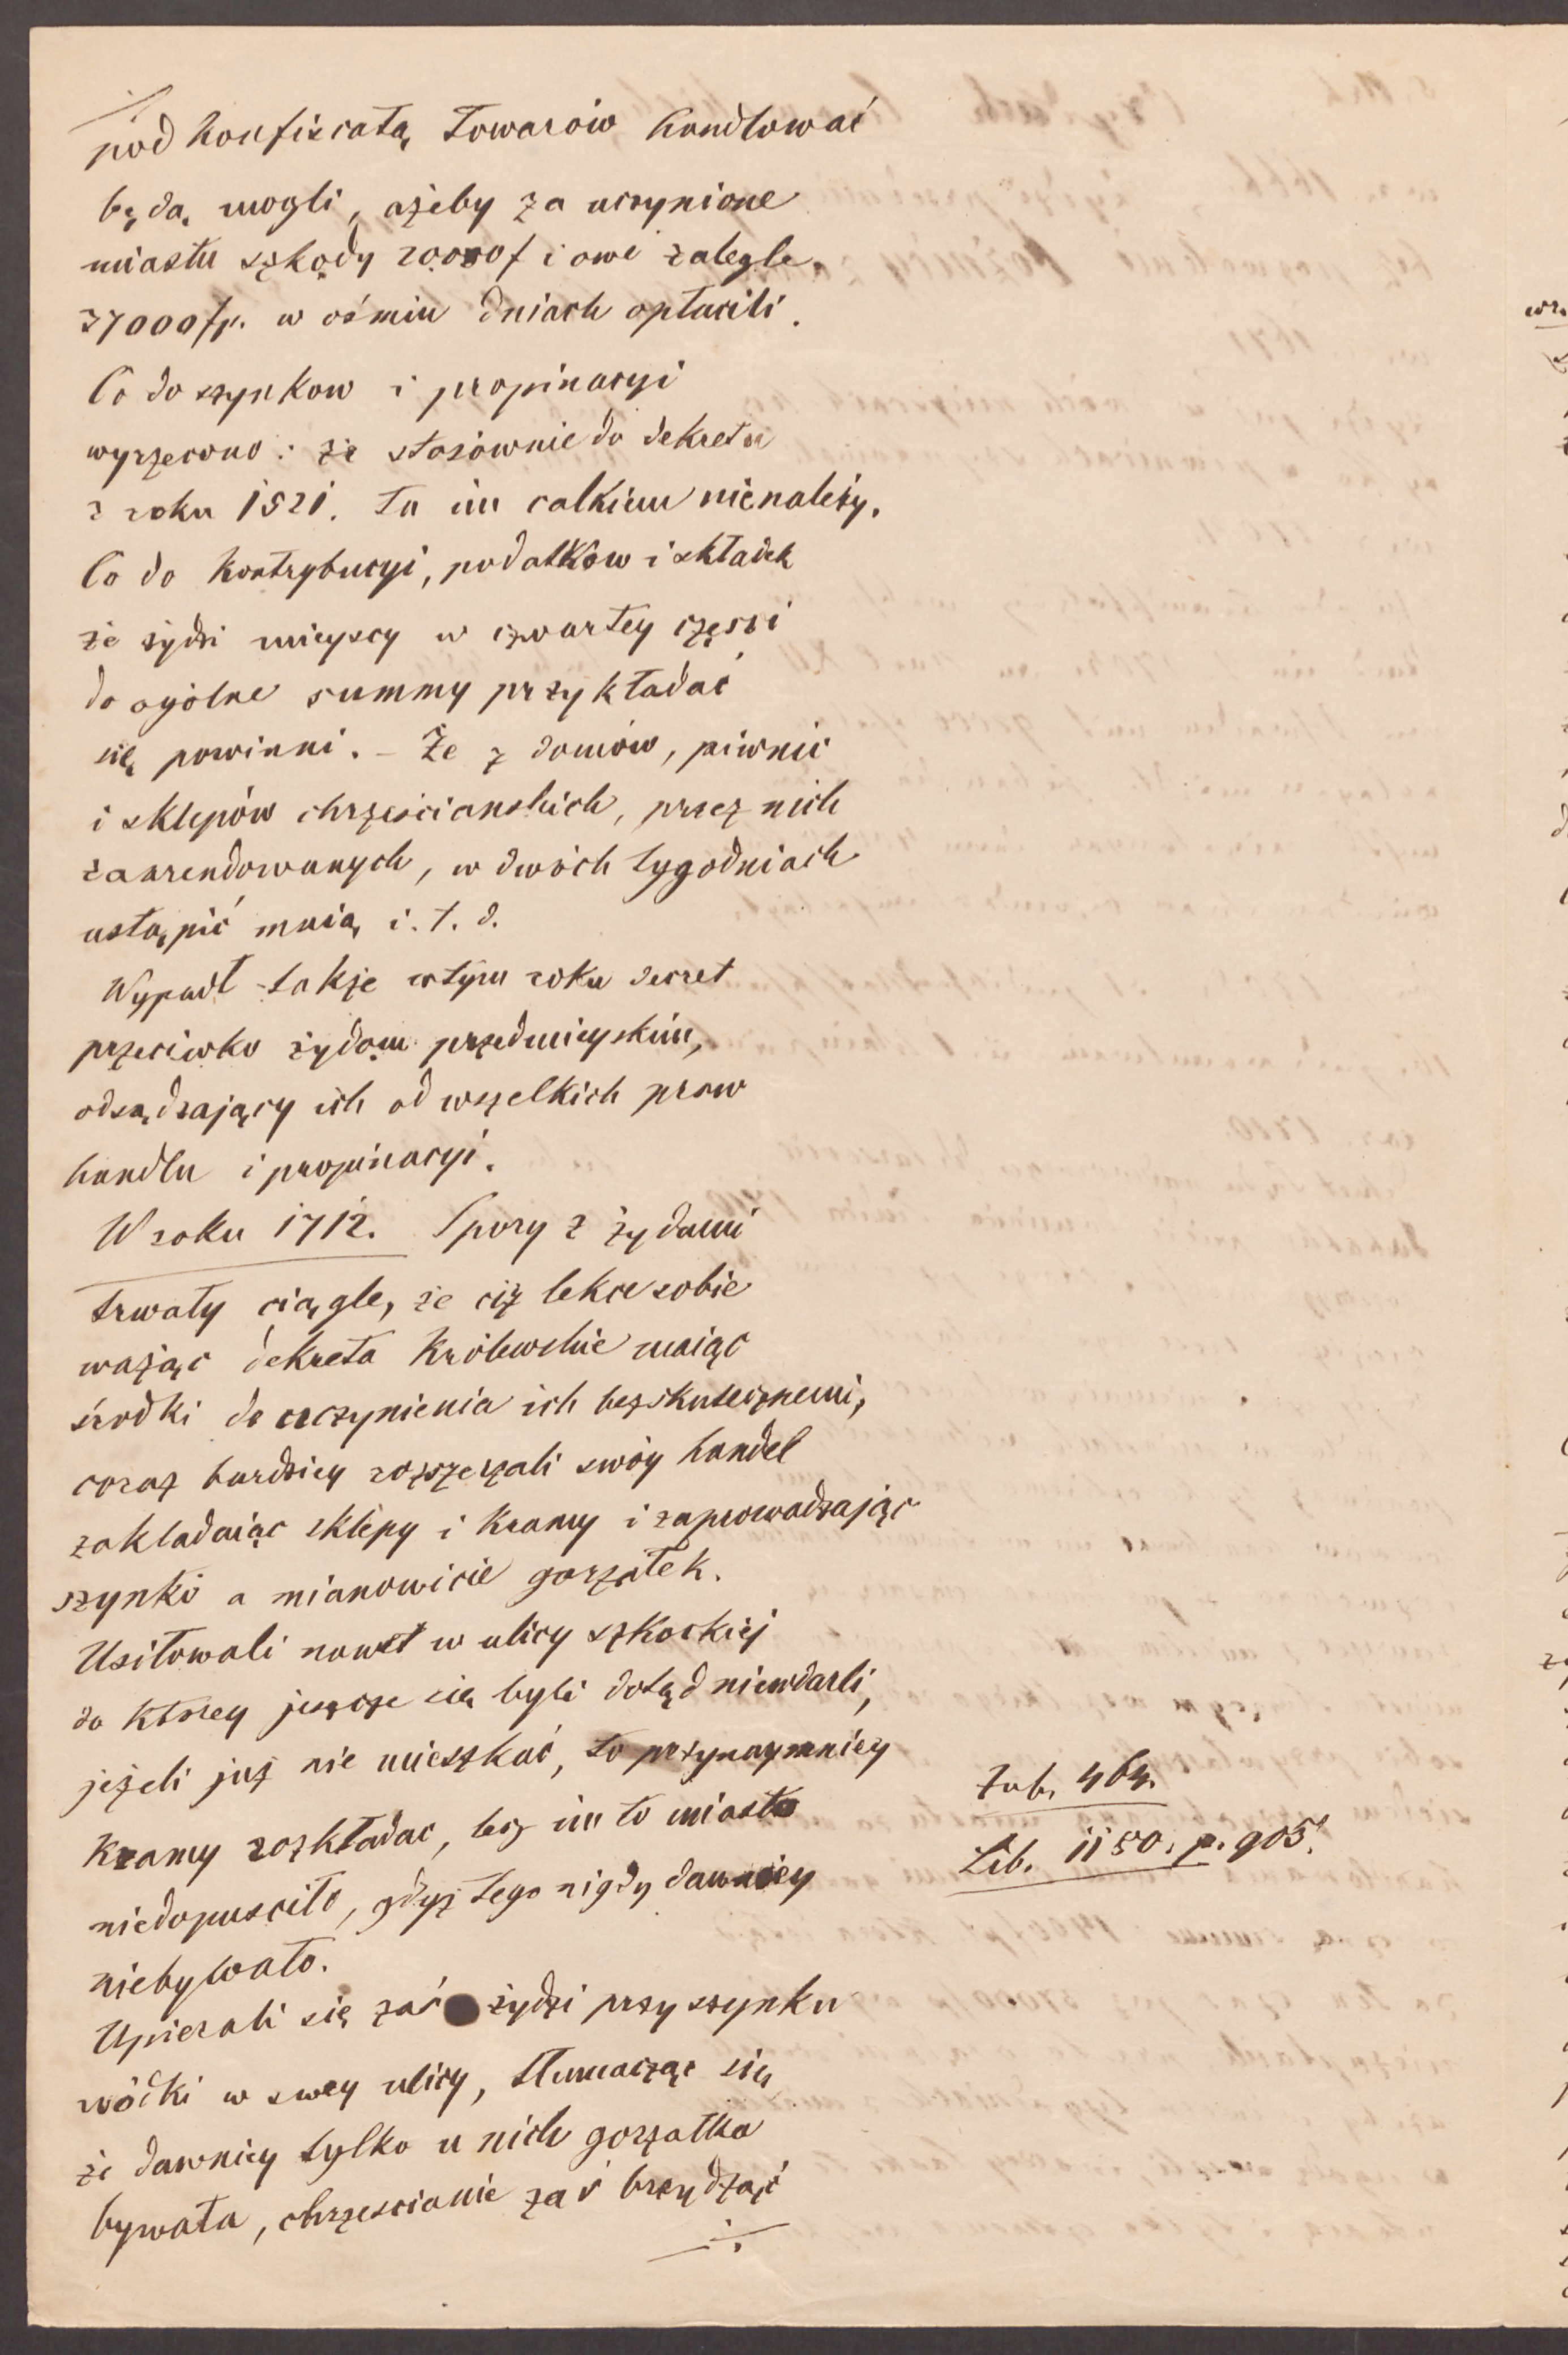 pod konfiscatą towarów handlować
będą mogli, ażeby za uczynione
miastu szkody 20000 f i owe zalegle
37000 fp. w ośmiu dniach opłacili.
Co do szynkow i propinacyi
wyrzeczono: że stosównie do dekretu
z roku 1521. ta im całkiem nienależy.
Co do kontrybucyi, podatków i składek
że żydzi mieyscy w czwartey części
do ogólne summy przykładać
się powinni. – Że z domów, piwnic
i sklepów chrześcianskich, przez nich
zaarendowanych, w dwóch tygodniach
ustąpić maią i. t. d.
Wypadł także w tym roku decret
przeciwko żydom przedmieyskim,
odsądzający ich od wszelkich praw
handlu i propinacyi.
W roku 1712. Spory z żydami
trwały ciągle, że ciż lekce sobie
ważąc dekreta królewskie maiąc
środki do uczynienia ich bezskutecznemi,
coraz bardziey rozszerzali swóy handel
zakladaiąc sklepy i kramy i zaprowadzając
szynki a mianowicie gorzałek.
Usiłowali nawet w ulicy szkockiéj
do ktorey jeszcze się byli dotąd niewdarli,
jeżeli już nie mieszkać, to przynaymniey
kramy rozkładac, lecz im to miasto
niedopusciło, gdyż tego nigdy dawniey
niebywało.
Upierali się zaś żydzi przy szynku
wódki w swey ulicy, tłumacząc się
że dawniey tylko u nich gorzałka
bywała, chrzescianie zaś brzydząc
Zub. 464.
Lib. 1150. p. 905.